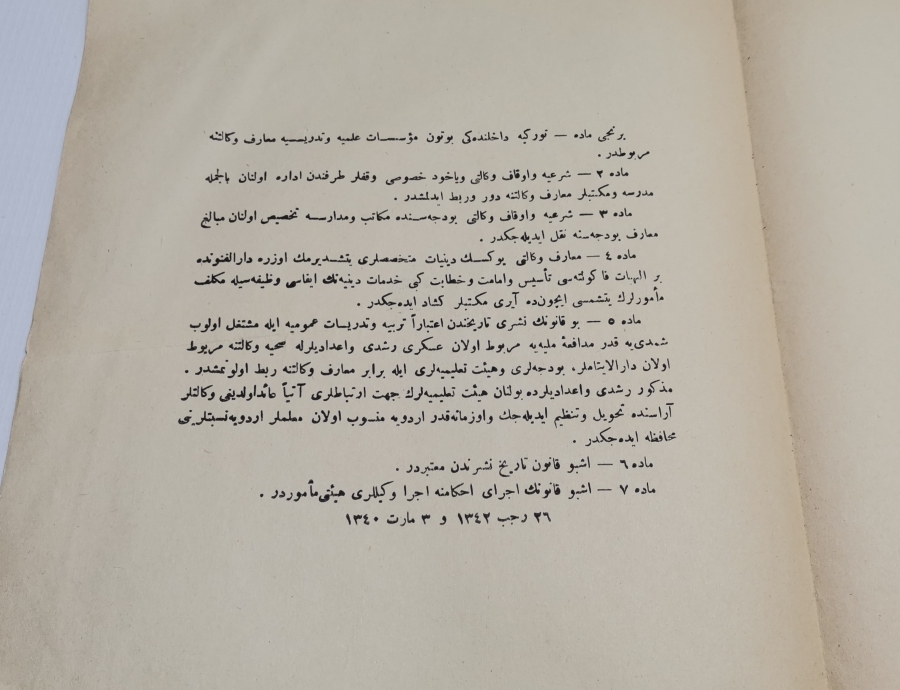 برنجى ماده — توركيه داخلنده‌كى بوتون مؤسسات علميه وتدريسيه معارف وكالتنه
مربوطدر .
ماده ٢ — شرعيه واوقاف وكالتى وياخود خصوصى وقفلر طرفندن اداره اولنان بالجمله
مدرسه ومكتبلر معارف وكالتنه دور وربط ايدلمشدر .
ماده ٣ — شرعيه واوقاف وكالتى بودجه‌سنده مكاتب ومدارسه تخصيص اولنان مبالغ
معارف بودجه‌سنه نقل ايديله‌جكدر .
ماده ٤ — معارف وكالتى يوكسك دينيات متخصصلرى يتشديرمك اوزره دارالفنونده
بر الهيات فاكولته‌سى تأسيس وامامت وخطابت كبى خدمات دينيه‌نك ايفاسى وظيفه‌سيله مكلف
مأمورلرك يتشمسى ايچون‌ده آيرى مكتبلر كشاد ايده‌جكدر .
ماده ٥ — بو قانونك نشرى تاريخندن اعتباراً تربيه وتدريسات عموميه ايله مشتغل اولوب
شمدى‌يه قدر مدافعهٔ مليه‌يه مربوط اولان عسكرى رشدى واعداديلرله صحيه وكالتنه مربوط
اولان دارالايتاملر، بودجه‌لرى وهيئت تعليميه‌لرى ايله برابر معارف وكالتنه ربط اولونمشدر .
مذكور رشدى واعداديلرده بولنان هيئت تعليميه‌لرك جهت ارتباطلرى آتياً عائداولدينى وكالتلر
آراسنده تحويل وتنظيم ايديله‌جك واوزمانه‌قدر اردويه منسوب اولان معلملر اردويه‌نسبتلرينى
محافظه ايده‌جكدر .
ماده ٦ — اشبو قانون تاريخ نشرندن معتبردر .
ماده ٧ — اشبو قانونك اجراى احكامنه اجرا وكيللرى هيئتى‌مأموردر .
٢٦ رجب ١٣٤٢ و ٣ مارت ١٣٤٠